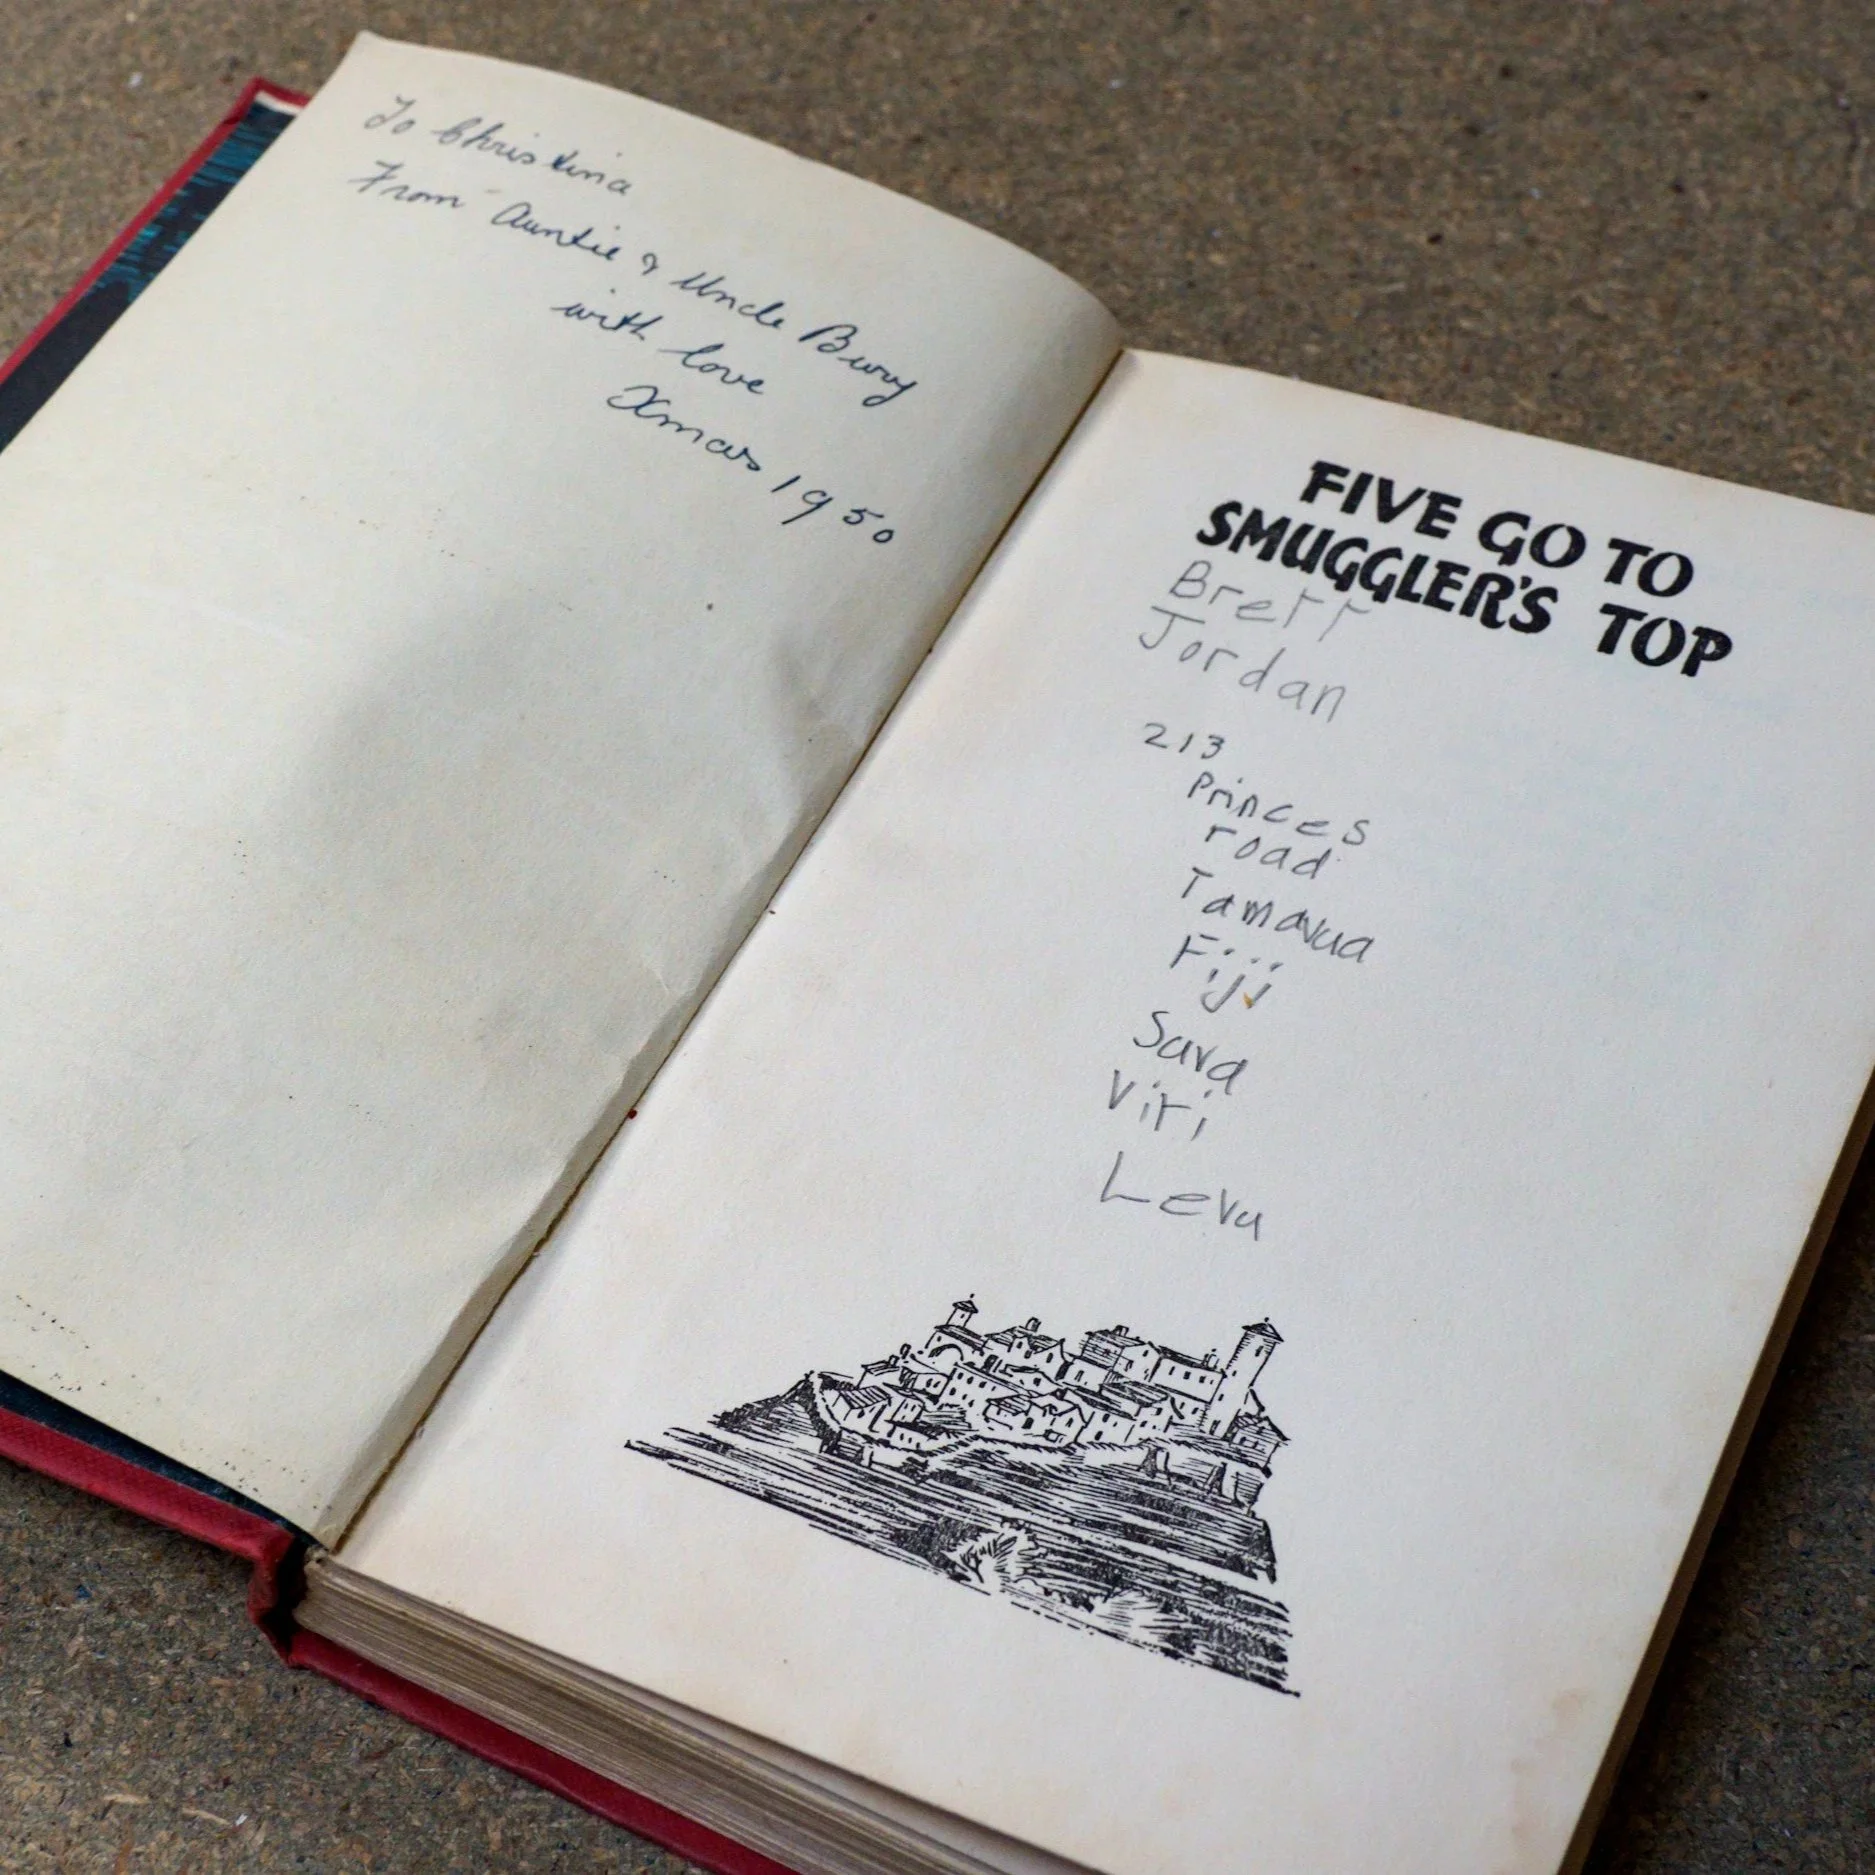 To Christina
From Auntie & Uncle Burry
with love
Xmas 1950
FIVE GO TO
SMUGGLER'S TOP
Brett
Jordan
213
Princes
road
Tamavua
Fiji
Suva
Viti
Levu